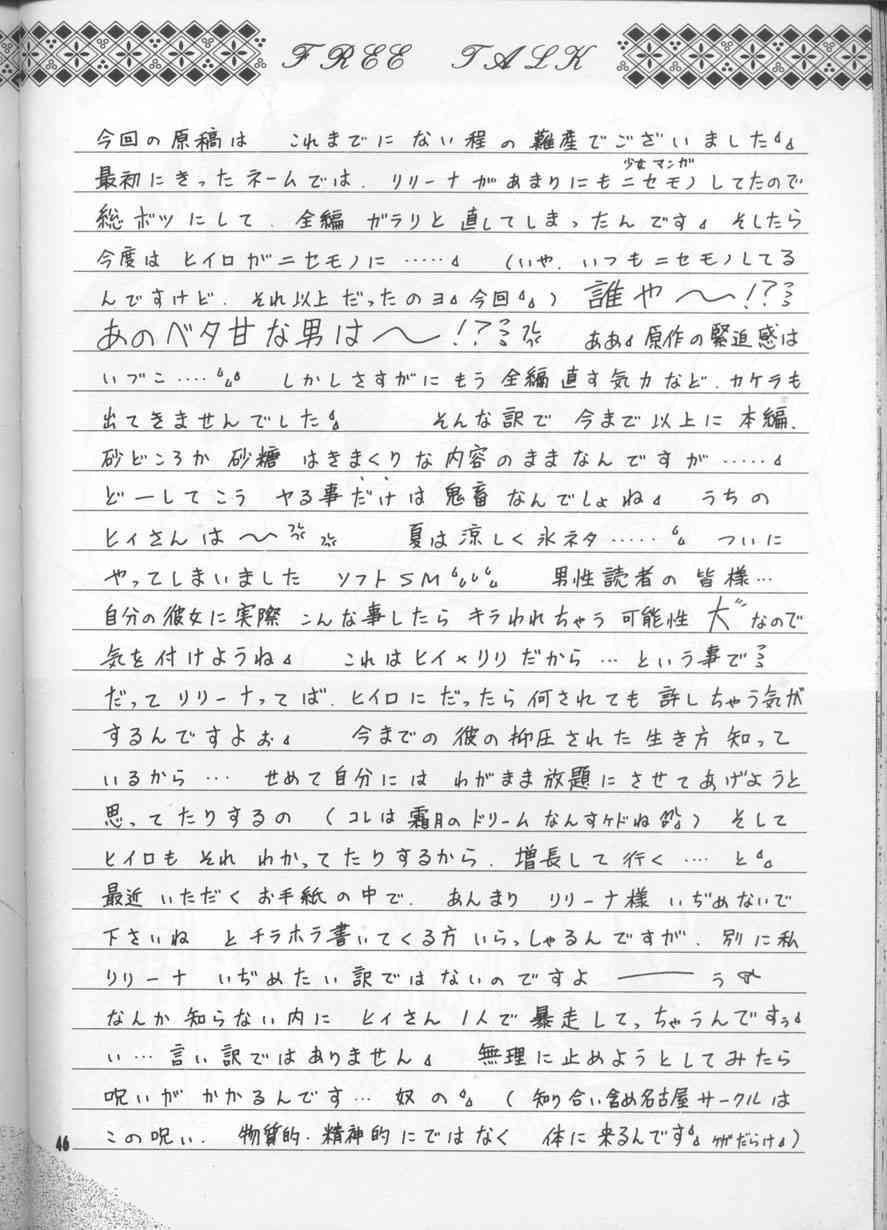 FREE TALK
今回の原稿は これまでに ない程 の 難産でございました
最初にきったネームでは、リリーナがあまりにも ニセモノ してたので
少女マンガ
総ボツにして、全編 ガラリと 直してしまったんです そしたら
今度は ヒイロがニセモノに …… (いや、いつもニセモノしてる
んですけど、それ以上だったのヨ 今回 ) 誰や〜!?
あのベタ甘な男は〜!? ああ 原作の緊迫感は
いづこ…. しかしさすがに もう 全編 直す 気力など、カケラも
出てきませんでした そんな訳で 今まで以上に 本編、
砂どころか 砂糖 はきまくりな内容のままなんですが……
どーしてこう ヤる事だけは 鬼畜 なんでしょね うちの
ヒイさんは〜 夏は涼しく氷ネタ…… ついに
やってしまいました ソフトSM 男性読者の 皆様…
自分の彼女に実際 こんな事したら キラわれちゃう 可能性 大 なので
気を付けようね これはヒイ×リリだから … という事で
だって リリーナってば、ヒイロにだったら 何されても 許しちゃう気が
するんですよぉ 今までの 彼の抑圧された 生き方 知って
いるから … せめて自分には わがまま放題にさせてあげようと
思ってたりするの (コレは 霜月のドリームなんすケドね ) そして
ヒイロも それ わかってたりするから、増長して行く …. と
最近いただくお手紙の中で、あんまり リリーナ様 いぢめないで
下さいね とチラホラ書いてくる方いらっしゃるんですが、別に私
リリーナ いぢめたい訳ではないのですよ ── う
なんか 知らない内に ヒイさん 1人で 暴走してっちゃうんですぅ
い… 言い訳ではありません 無理に止めようとしてみたら
呪いが かかるんです… 奴の ( 知り合い含め名古屋サークルは
この呪い、物質的・精神的にではなく 体に来るんです ケガだらけ)
46